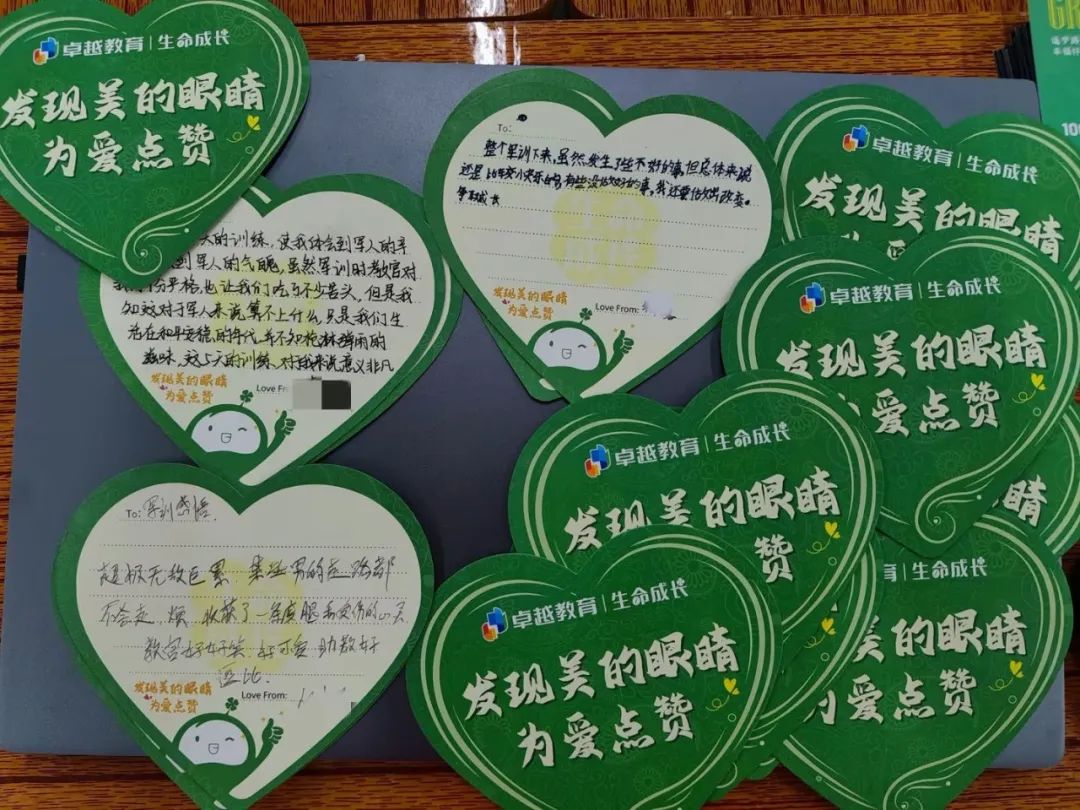 卓越教育 | 生命成长
发现美的眼睛
为爱点赞
天的训练，使我体会到军人的辛
到军人的气魄，虽然军训时教官对
严格，也让我们吃了不少苦头，但是我
知这对于军人来说算不上什么，只是我们生
活在和平安稳的年代，并不知枪林弹雨的
滋味，这5天的训练，对我来说意义非凡
发现美的眼睛
为爱点赞
Love Fr
To:
整个军训下来，虽然发生了些不好的事，但总体来说
还是比较快乐的，有些没做好的事，我还要做好改变。
争取成长
发现美的眼睛
为爱点赞
Love From:
To: 军训感悟
超级无敌巨累 某些男的走路都
不会走 烦 收获了一条
教官好好笑 好可爱 助教好
Love From:
发现美的眼睛
为爱点赞
卓越教育 | 生命成长
发现美的眼睛
卓越教育 | 生命成长
发现美的眼睛
爱点赞
卓越教育 | 生命成长
发现美的眼睛
赞
卓越教育 | 生命成长
发现美的眼睛
为爱点赞
育 | 生命成长
现美的眼睛
为爱点赞
睛
10